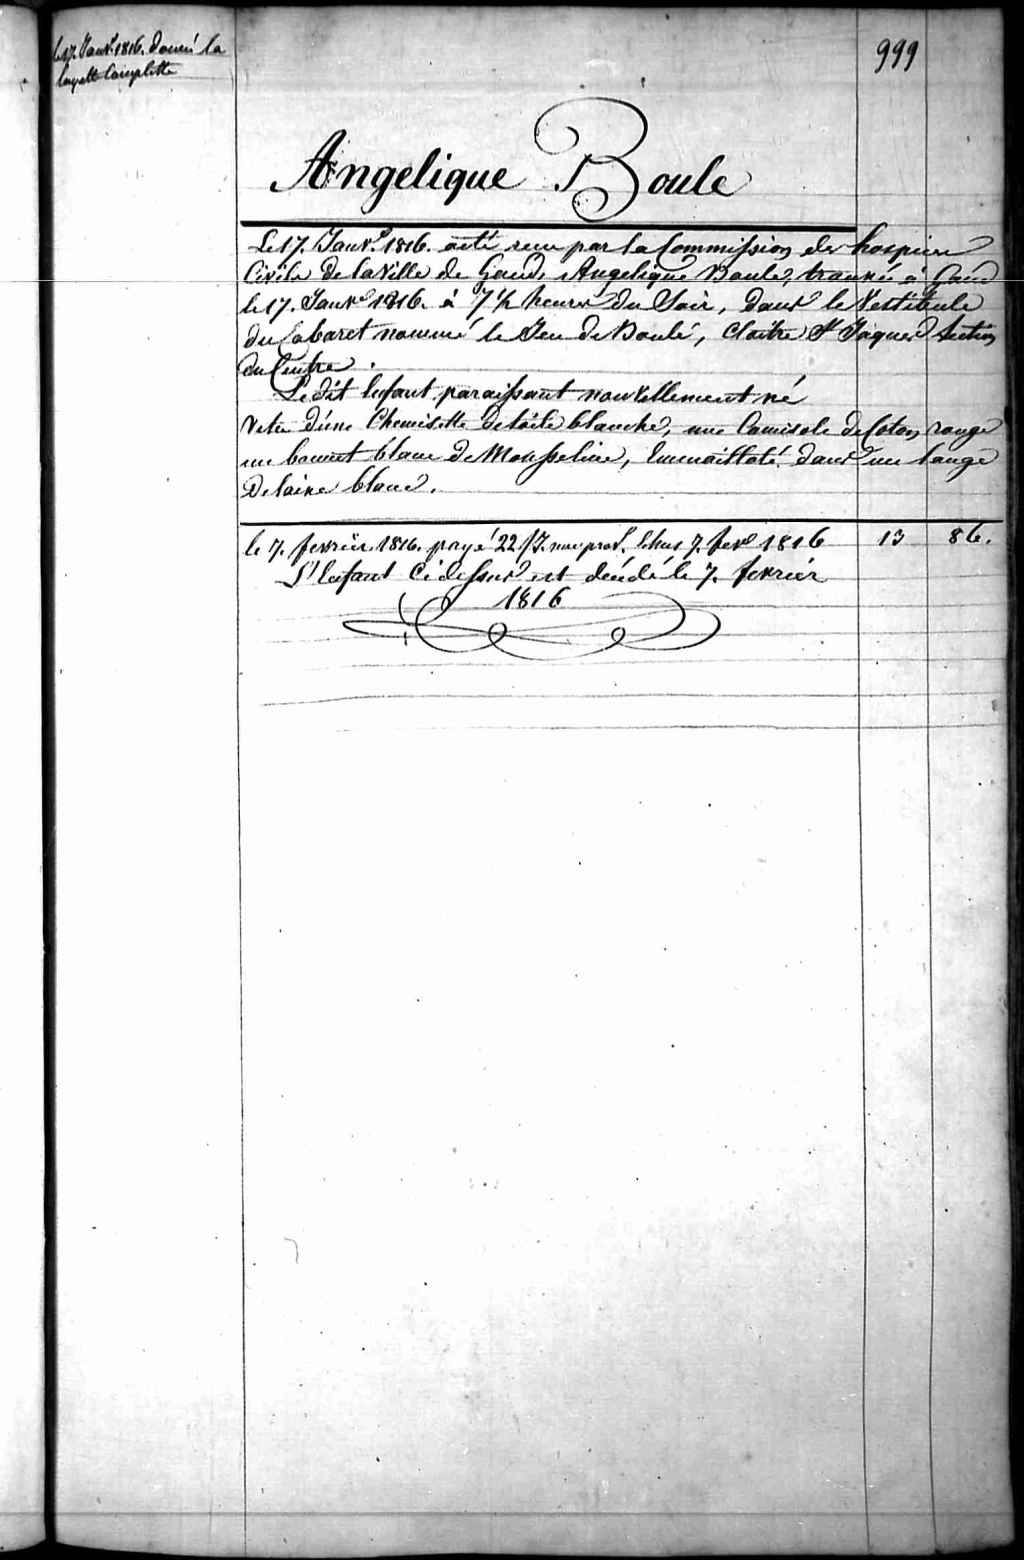 le 17. Janvr. 1816. donné la
layette Complette
999
Angelique Boule
Le 17. Janvr. 1816. a été recu par la Commission des hospices
Civils de la Ville de Gand, Angelique Boule, trouvé à Gand
le 17. Janvr. 1816. à 7 1/2 heures du Soir, dans le Vestibule
du Cabaret nommé le Jeu de Boule, Cloître St. Jaques Section
du Centre.
Ledit Enfant paraissant nouvellement né
Vetu d'une Chemisette de toile blanche, une Camisole de Coton rouge
un bonnet blanc de Mousseline, Emmailloté dans un lange
de laine blanc.
le 7. fevrier 1816. payé 22 7. fevr. 1816 13 86.
L'Enfant Ci dessus est décédé le 7. fevrier
1816